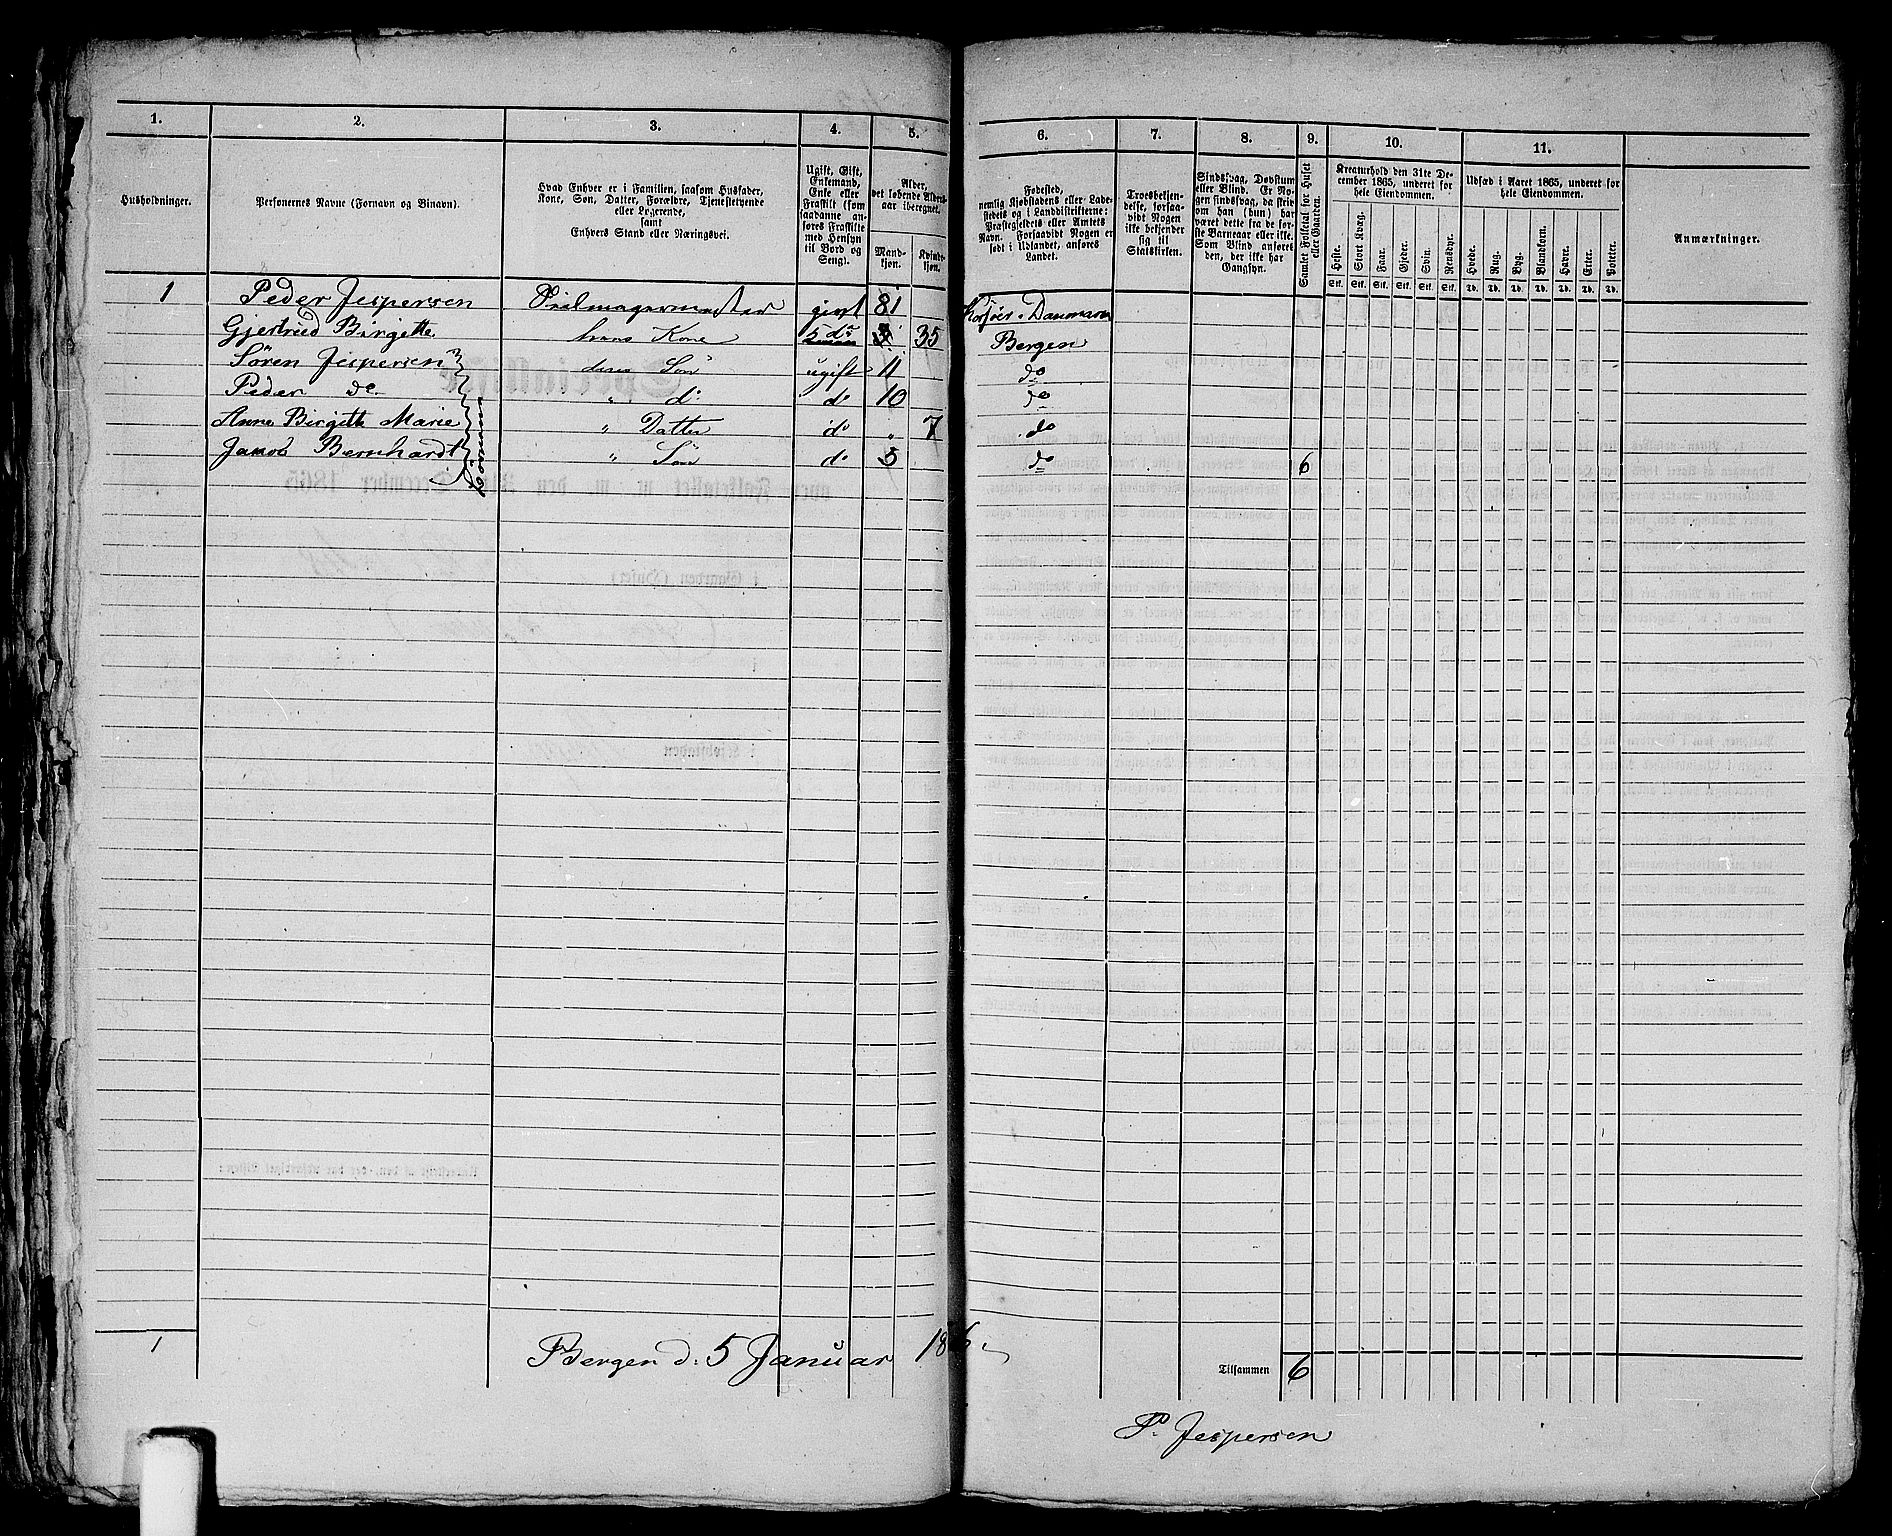 1.
2.
3.
4.
5.
6.
7.
8.
9.
10.
11.
Husholdninger.
Personernes Navne (Fornavn og Binavn).
Hvad Enhver er i Familien, saasom Husfader,
Kone, Søn, Datter, Forældre, Tjenestetyende
eller Logerende,
samt
Enhvers Stand eller Næringsvei.
Ugift, Gift,
Enkemand,
Enke eller
Fraskilt (som
saadanne an-
føres Fraskilte
med Hensyn
til Bord og
Seng).
Alder,
det løbende Alders-
aar iberegnet.
Mand-
kjøn.
Kvinde-
kjøn.
Fødested,
nemlig Kjøbstadens eller Lade-
stedets og i Landdistrikterne:
Præstegjeldets eller Amtets
Navn. Forsaavidt Nogen er
født i Udlandet, anføres
Landet.
Troesbekjen-
delse, forsaa-
vidt Nogen
ikke bekjender
sig til
Statskirken.
Sindssvag, Døvstum
eller Blind. Er No-
gen sindssvag, da skriv
om han (hun) har
været dette fra de før-
ste Barneaar eller ikke.
Som Blind anføres
den, der ikke har
Gangsyn.
Samlet Folketal for Huset
eller Gaarden.
Kreaturhold den 31te De-
cember 1865, underet for
hele Eiendommen.
Heste.
Stort Kvæg.
Faar.
Gjeder.
Svin.
Rensdyr.
Stk. Stk. Stk. Stk. Stk. Stk.
Udsæd i Aaret 1865, underet for
hele Eiendommen.
Hvede.
Rug.
Byg.
Blandkorn.
Havre.
Erter.
Poteter.
Td. Td. Td. Td. Td. Td. Td.
Anmærkninger.
1 Peder Jespersen givt 81 Korsör i Danmark
Gjertrud Birgette hans Kone do 35 Bergen
Sören Jespersen deres Sön ugift 11 do
Peder do " do do 10 do
Anne Birgitte Marie " Datter do " 7 do
Jakob Bernhardt " Sön do 5 do 6
1
Bergen d: 5 Januar 186
Tilsammen 6
P. Jespersen